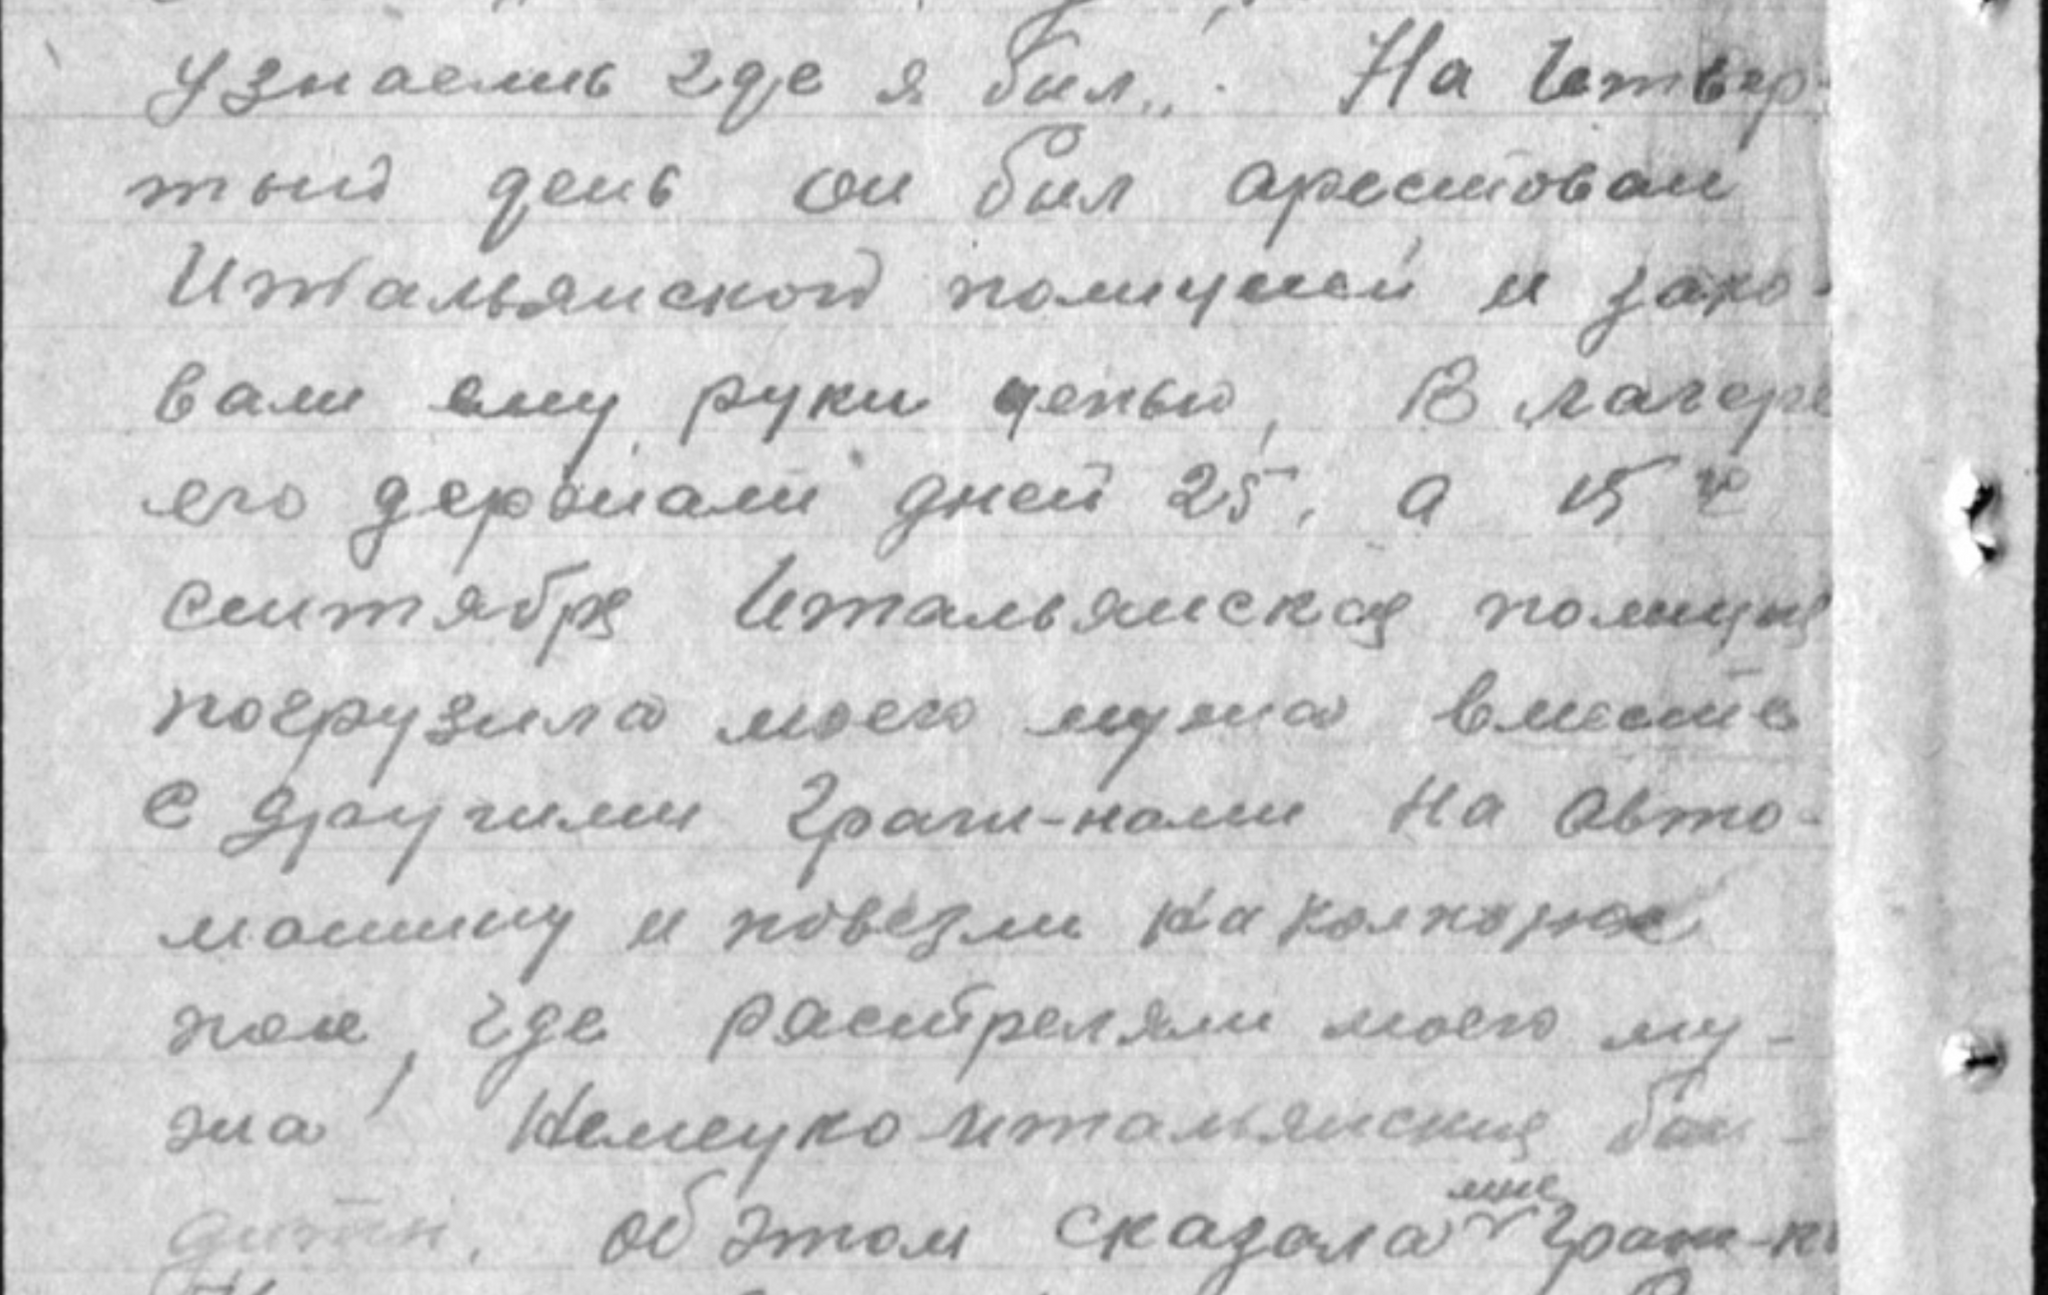 узнаешь где я был". На четвер-
тый день он был арестован
Итальянской полицией и зако-
вали ему руки цепью, В лагере
его держали дней 25, а 15го
сентября Итальянская полиция
погрузила моего мужа вместе
с другими граж-нами на авто-
машину и повезли на
где расстреляли моего му-
жа Немецко итальянские бан-
диты. Об этом сказала мне граж-ка